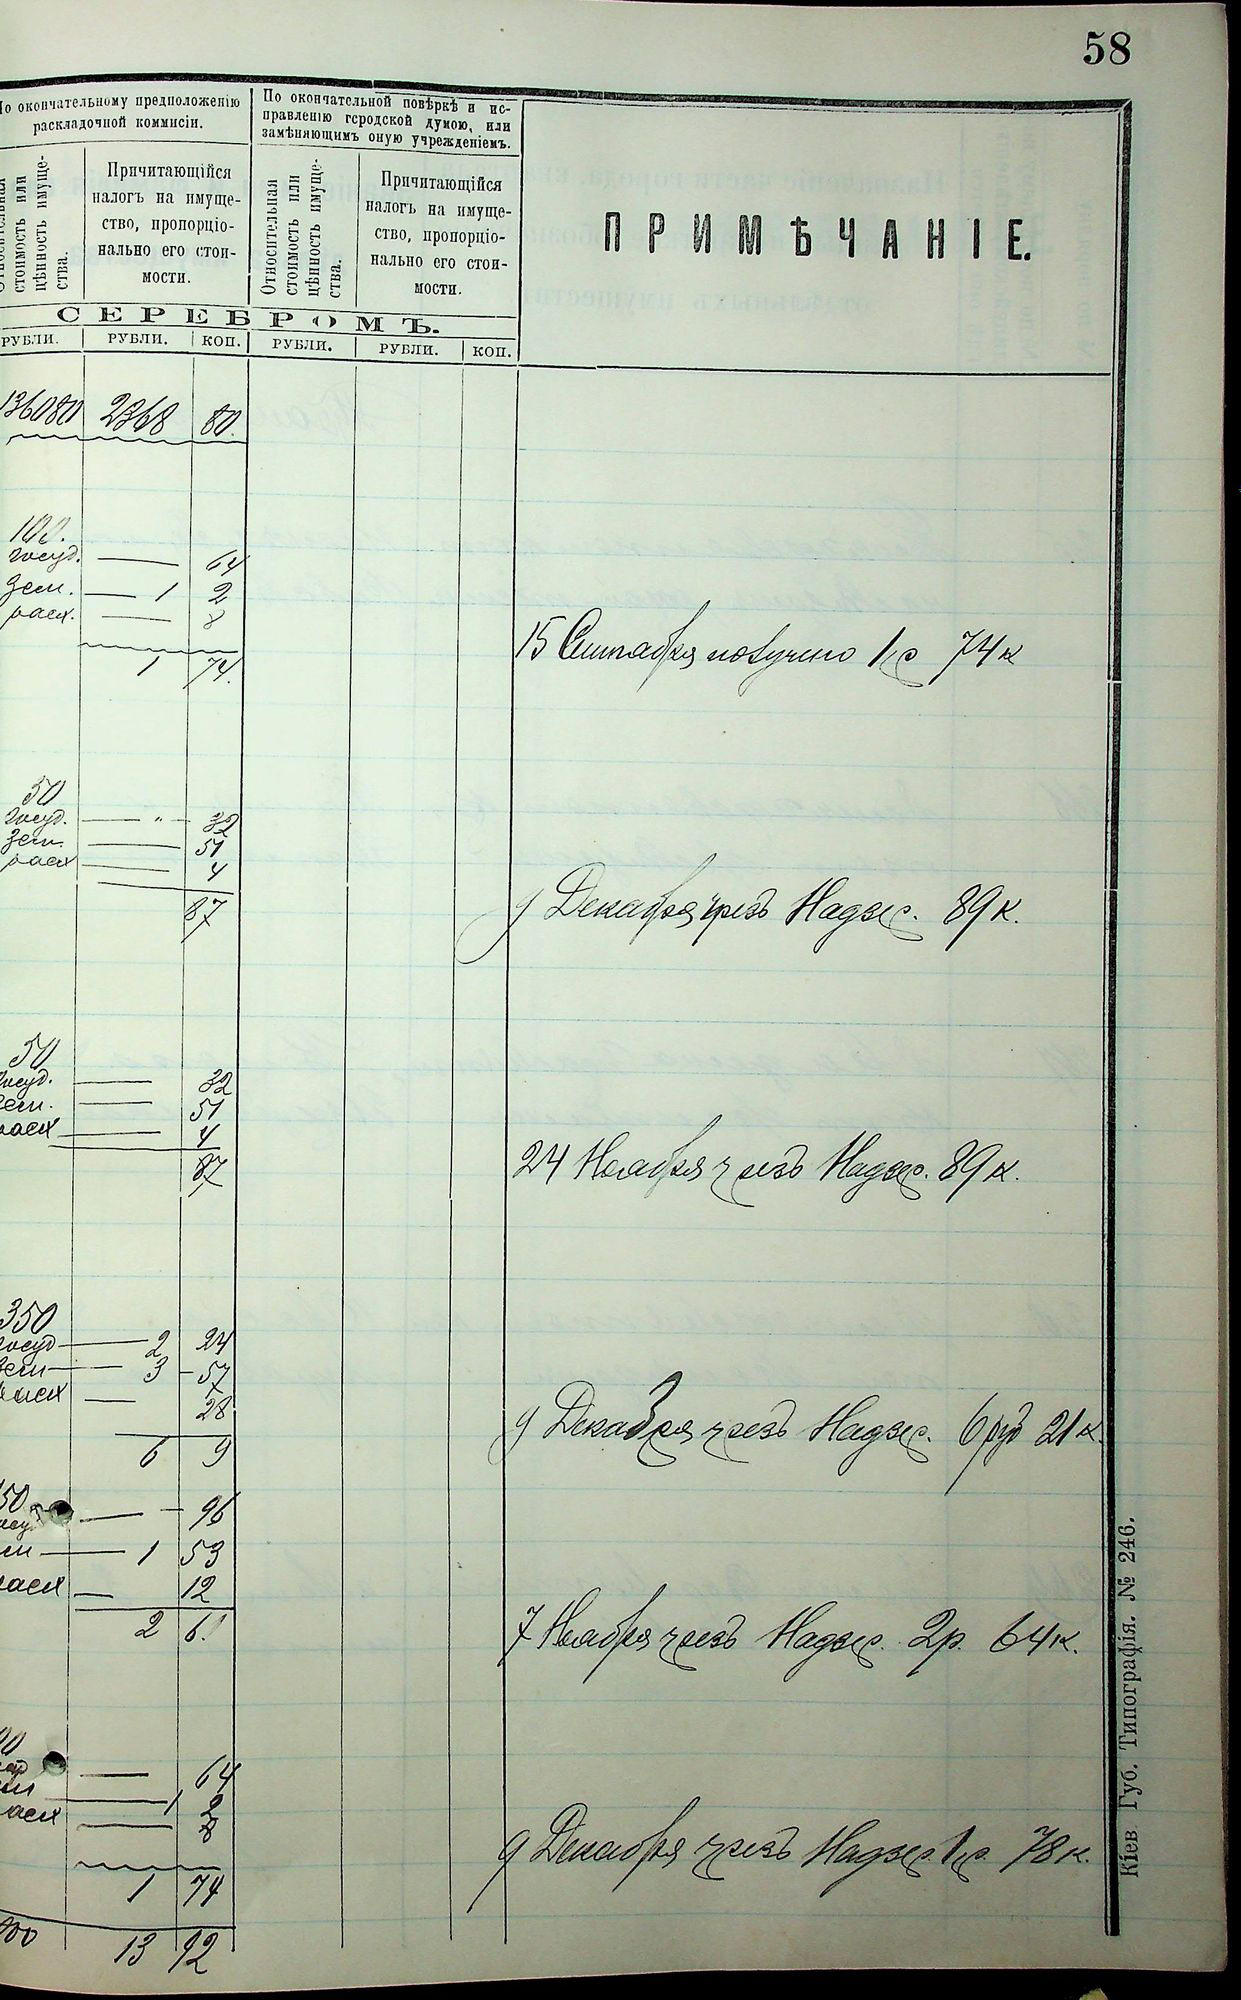 58
По окончательному предположенію
раскладочной коммисіи.
По окончательной повѣркѣ и ис-
правленію городской думою, или
замѣняющимъ оную учрежденіемъ.
Относительная
стоимость или
цѣнность имуще-
ства.
Причитающійся
налогъ на имуще-
ство, пропорціо-
нально его стои-
мости.
Относительная
стоимость или
цѣнность имуще-
ства.
Причитающійся
налогъ на имуще-
ство, пропорціо-
нально его стои-
мости.
ПРИМѢЧАНІЕ.
СЕРЕБРОМЪ.
РУБЛИ. РУБЛИ. КОП. РУБЛИ. РУБЛИ. КОП.
136080 2368 80.
100.
госуд. — 64
зем. — 1 2
расх. — 8
1 74.
15 Сентября получено 1 р 74 к
50
госуд. — " — 32
зем. — 51
расх — 4
87
9 Декабря чрезъ Надзр. 89 к.
50
госуд. — 32
зем. — 51
расх — 4
87
24 Ноября чрезъ Надзр. 89 к.
350
госуд — 2 24
зем — 3 — 57
расх — 28
6 9
9 Декабря чрезъ Надзр. 6 руб 21 к.
50
— — 96
— 1 53
расх — 12
2 61
7 Ноября чрезъ Надзр. 2 р. 64 к.
— 64
— 1 2
расх — 8
1 74
9 Декабря чрезъ Надзр. 1 р. 78 к.
13 92
Кіев. Губ. Типографія. № 246.